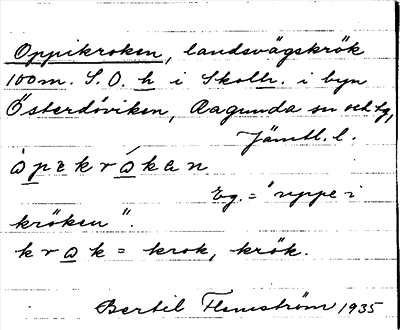 Oppikroken, landsvägskrök
100 m. S.O. h i Skolh. i byn
Österdöviken, Ragunda sn och tg,
Jämtl. l.
åpɛkråkan
Eg. = "uppe i
kröken".
krok = krok, krök.
Bertil Flemström 1935